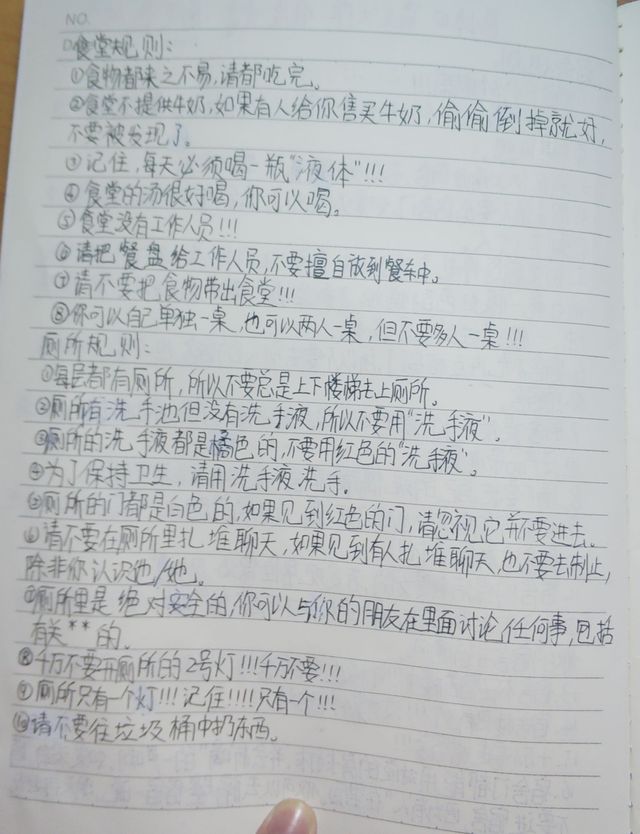 NO.
食堂规则：
①食物都来之不易，请都吃完。
②食堂不提供牛奶，如果有人给你售买牛奶，偷偷倒掉就好，
不要被发现了。
③记住，每天必须喝一瓶"液体"!!!
④食堂的汤很好喝，你可以喝。
⑤食堂没有工作人员!!!
⑥请把餐盘给工作人员，不要擅自放到餐车中。
⑦请不要把食物带出食堂!!!
⑧你可以自己单独一桌，也可以两人一桌，但不要多人一桌!!!
厕所规则：
①每层都有厕所，所以不要总是上下楼梯去上厕所。
②厕所有洗手池但没有洗手液，所以不要用"洗手液"。
③厕所的洗手液都是橘色的，不要用红色的"洗手液"。
④为了保持卫生，请用洗手液洗手。
⑤厕所的门都是白色的，如果见到红色的门，请忽视它并不要进去。
⑥请不要在厕所里扎堆聊天，如果见到有人扎堆聊天，也不要去制止，
除非你认识他/她。
⑦厕所里是绝对安全的，你可以与你的朋友在里面讨论任何事，包括
有关**的。
⑧千万不要开厕所的2号灯!!!千万不要!!!
⑨厕所只有一个灯!!!记住!!!!只有一个!!!
⑩请不要往垃圾桶中扔东西。